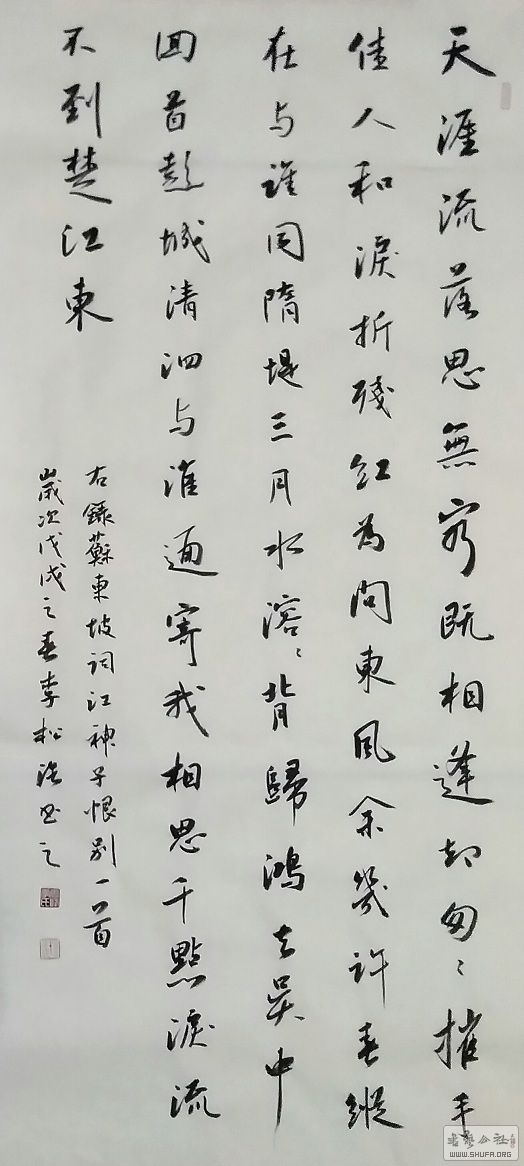 天涯流落思無窮既相逢却匆〻攜手
佳人和淚折殘紅為问東風余幾許春縱
在与誰同隋堤三月水溶〻背歸鴻去吴中
回首彭城清泗与淮通寄我相思千點淚流
不到楚江東
右錄蘇東坡词江神子恨别一首
歲次戊戌之春李松
书艺公社
WWW.SHUFA.ORG